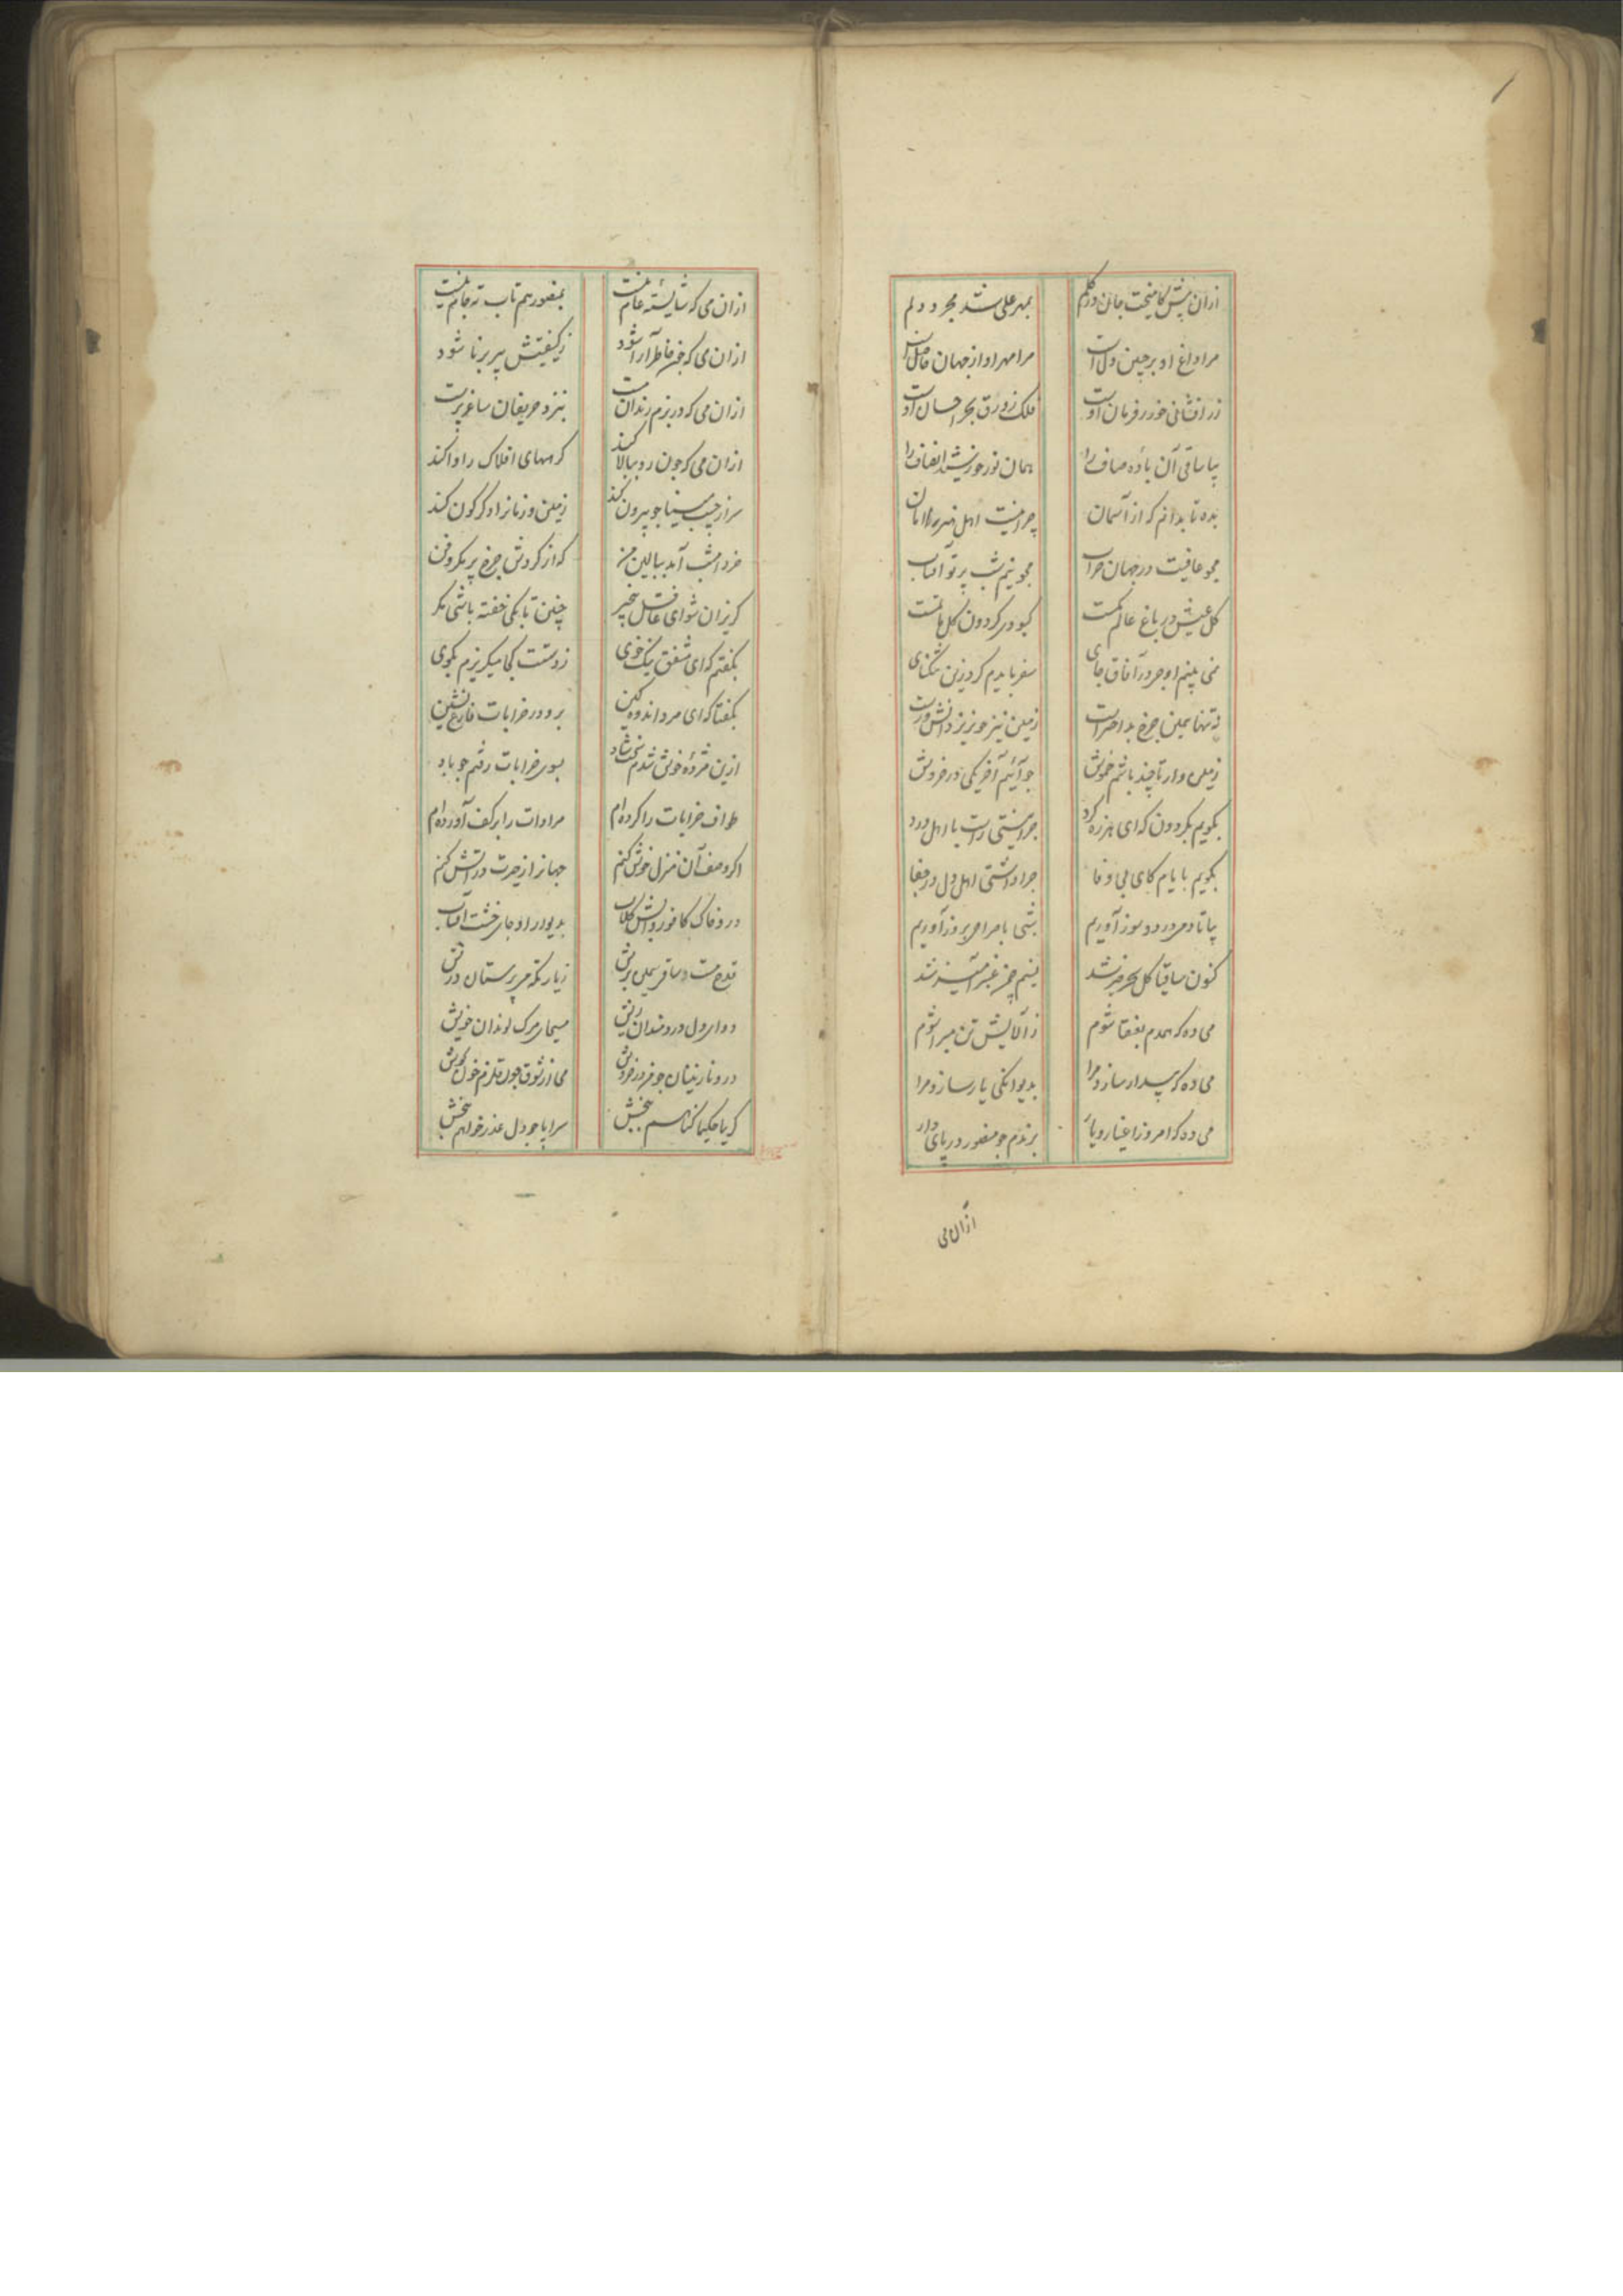 ازان پیش کامیخت جان در کلم بمهر علی شد مجرد دلم
مرا داغ او بر جبین دل است مرا مهر او از جهان حاصل است
زر افشانی خور ز فرمان اوست فلک زورق بحر احسان اوست
بیا ساقی آن باده صاف را همان نور خورشید انصاف را
بده تا بدانم که از آسمان چرا نیست اهل هنر را امان
مجو عافیت در جهان خراب مجو نیم شب پرتو آفتاب
کل عیش در باغ عالم کمست کبودی کردون کل ماتمست
نمی بینم اوجر در آفاق جای سفر بایدم کرد زین تنکنای
نه تنها همین چرخ بد اختر است زمین نیز خونریز دانشورست
زمین وار تا چند باشم خموش جو آئیم آخر یکی در خروش
بکویم بکردون که ای هرزه کرد چرا نیستی راست با اهل درد
بکویم با یام کای بی وفا چرا داشتی اهل دل در جفا
بیا تا دمی درد و سوز آوریم شبی با مرادی بروز آوریم
کنون ساقیا کل سحرخیز شد نسیم چمن عنبرآمیز شد
می ده که همدم بعنقا شوم ز آلایش تن مبرا شوم
می ده که بیدار سازد مرا بدیوانکی یار سازد مرا
می ده که امروز اغیار و یار برندم جو منصور در پای دار
ازان می
ازان می که شایسته عام نیست بمنصور هم تاب ته جام نیست
ازان می که جون خاطر آرا شود ز کیفیتش پیر برنا شود
ازان می که در بزم رندان مست بنزد حریفان ساغر پرست
ازان می که جون رو ببالا کند کرههای افلاک را وا کند
سر از جیب مینا جو بیرون کند زمین و زمانرا دکرکون کند
خرد امشب آمد ببالین من که از کردش چرخ پر مکر و فن
کریزان شو ای غافل بیخبر چنین تا بکی خفته باشی مکر
بکفتم که ای مشفق نیک خوی ز دستت کجا میکریزم بکوی
بکفتا که ای مرد اندوه کین برو در خرابات فارغ نشین
ازین مژده خوش شدم سخت شاد بسوی خرابات رفتم جو باد
طواف خرابات را کرده ام مرادات را بر کف آورده ام
اکر وصف آن منزل خوش کنم جهانرا ز حیرت در آتش کنم
درو خاک کافور و آبش کلاب بدیوار او جای خشت آفتاب
قدح مست و ساقی سیمین برش زیارتکه می پرستان درش
دوای دل دردمندان ریش مسیحای مرک لوندان خویش
درو نازنینان جو می در خروش می از شوق جون قلزم خون بجوش
کریما حکیما کناهم ببخش سراپا جو دل عذر خواهم ببخش